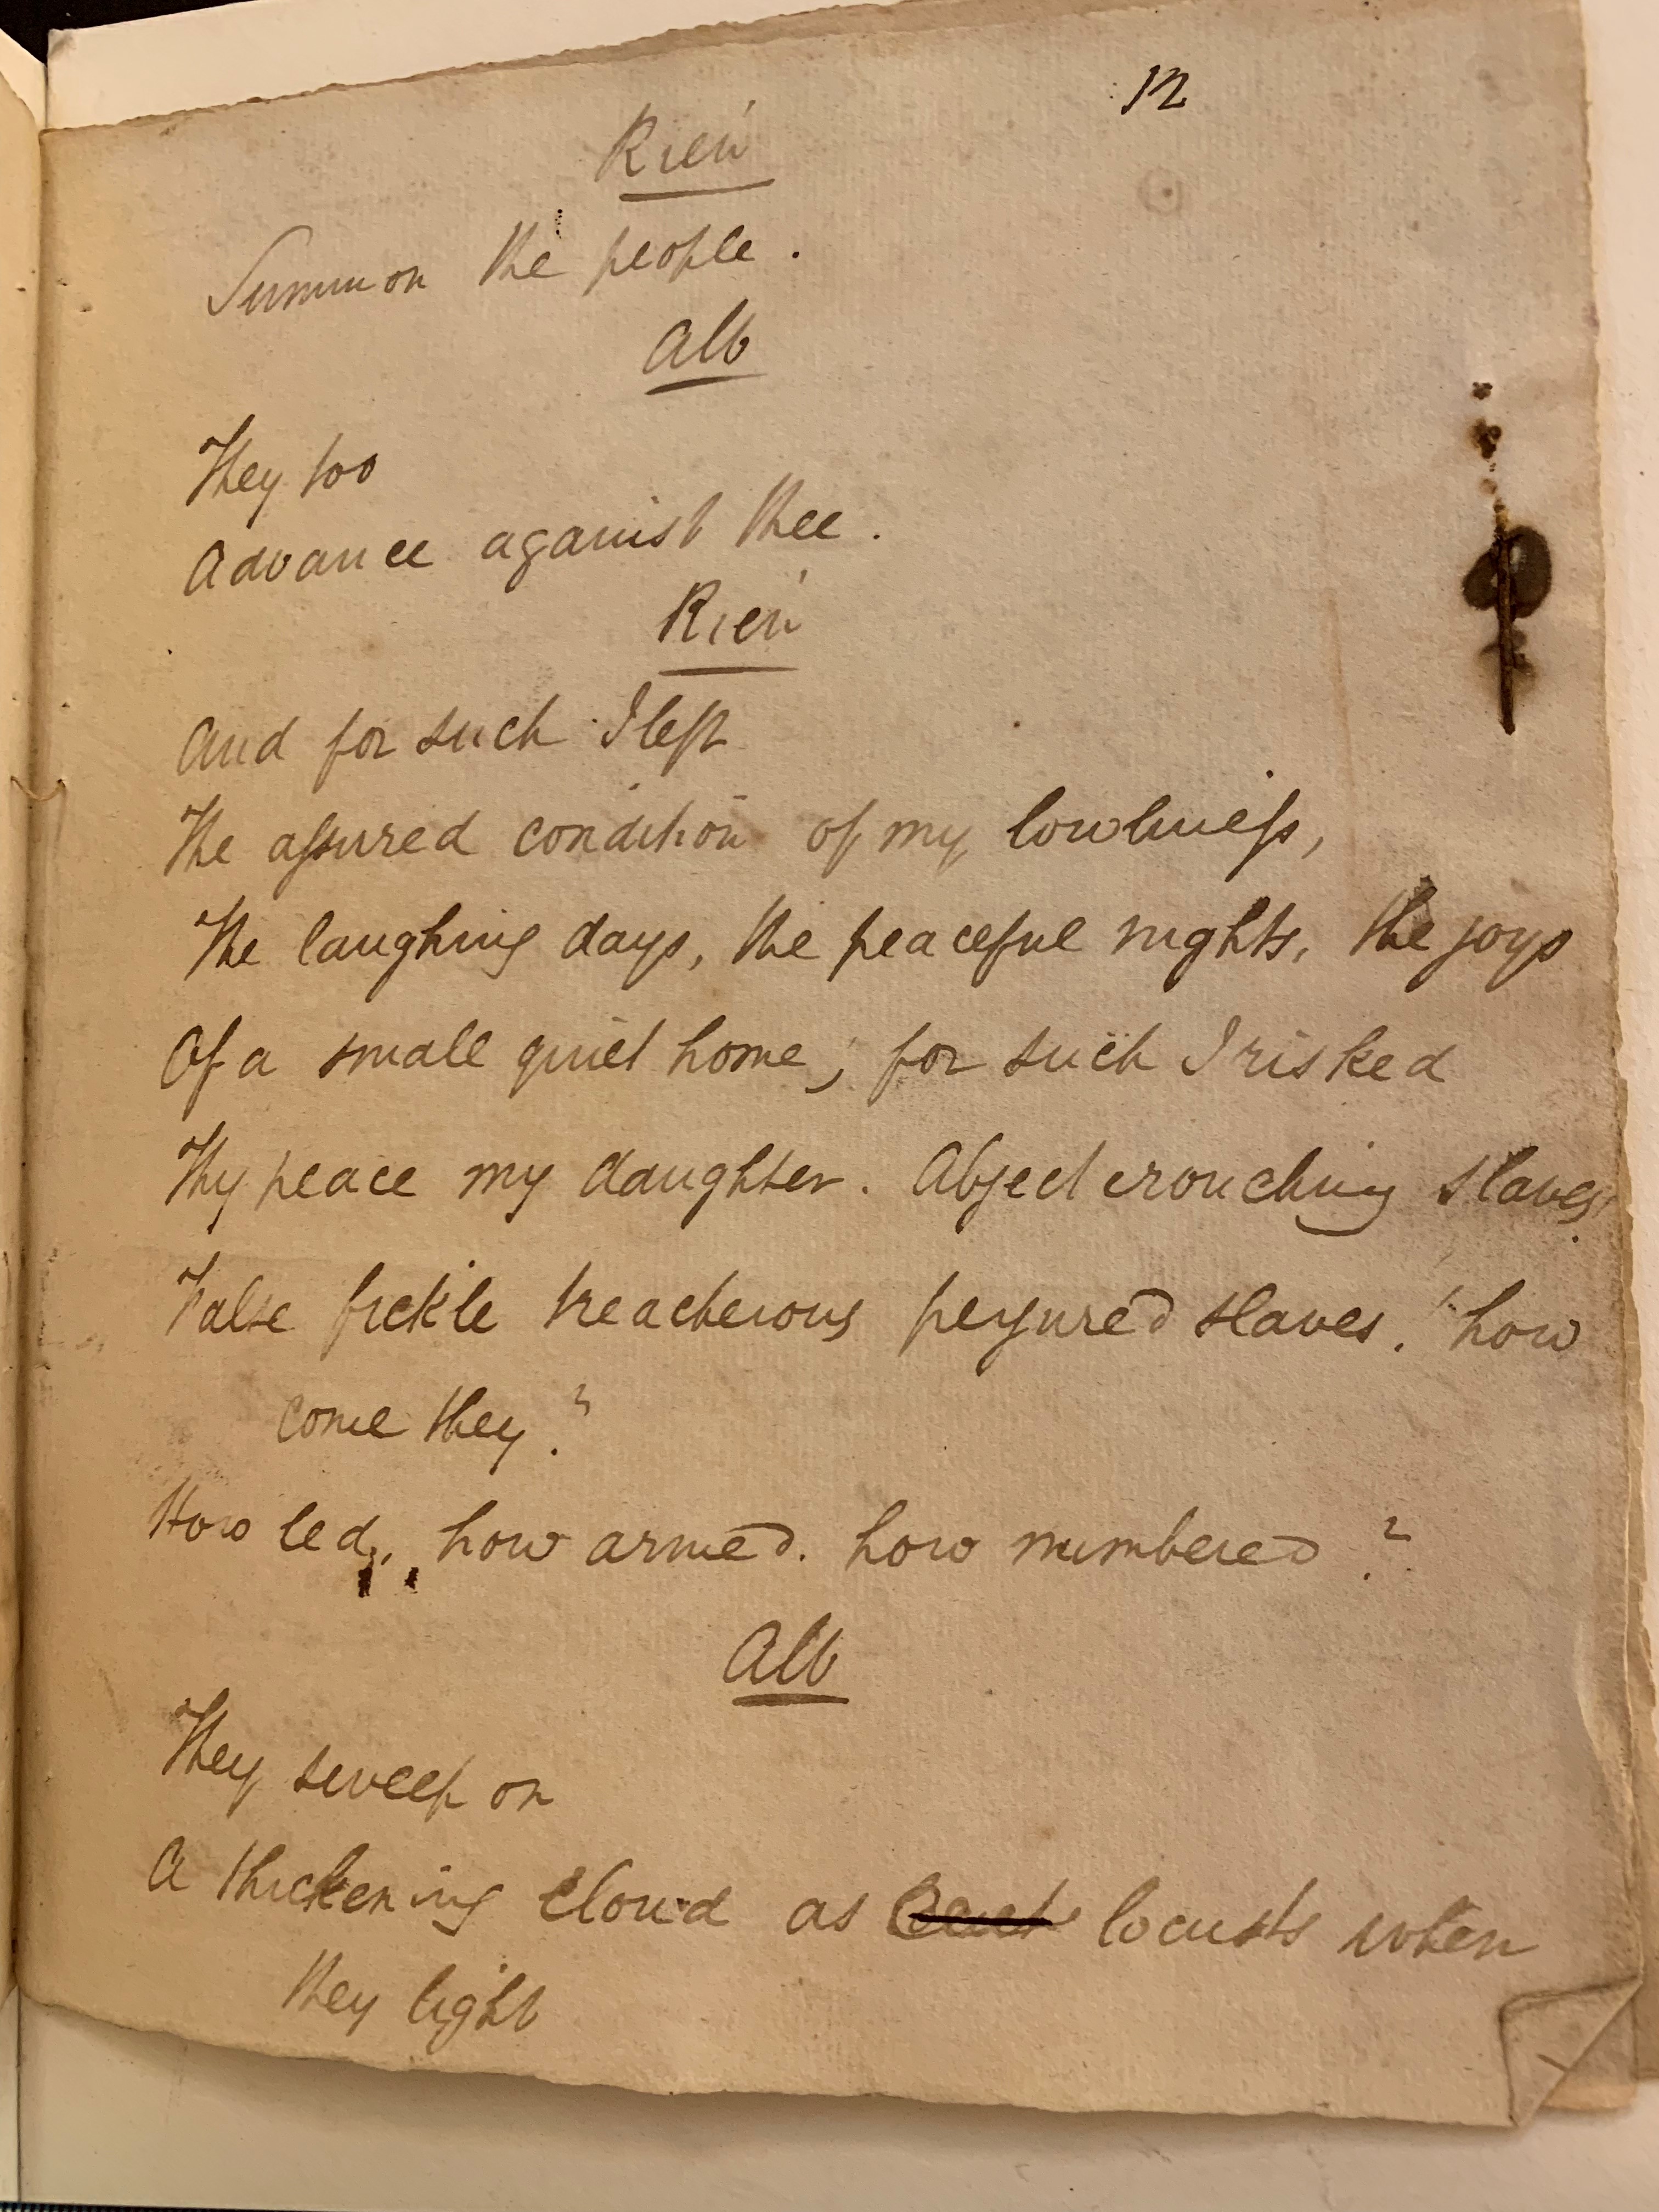 12
Rien
Summon the people.
Alb
They too
Advance against thee.
Rien
And for such I left
The assured condition of my lowliness,
The laughing days, the peaceful nights, the joys
Of a small quiet home; for such I risked
Thy peace my daughter. Abject crouching slaves
False fickle treacherous perjured slaves! how
come they?
How led, how armed. how numbered?
Alb
They sweep on
A thickening cloud as locusts when
they light